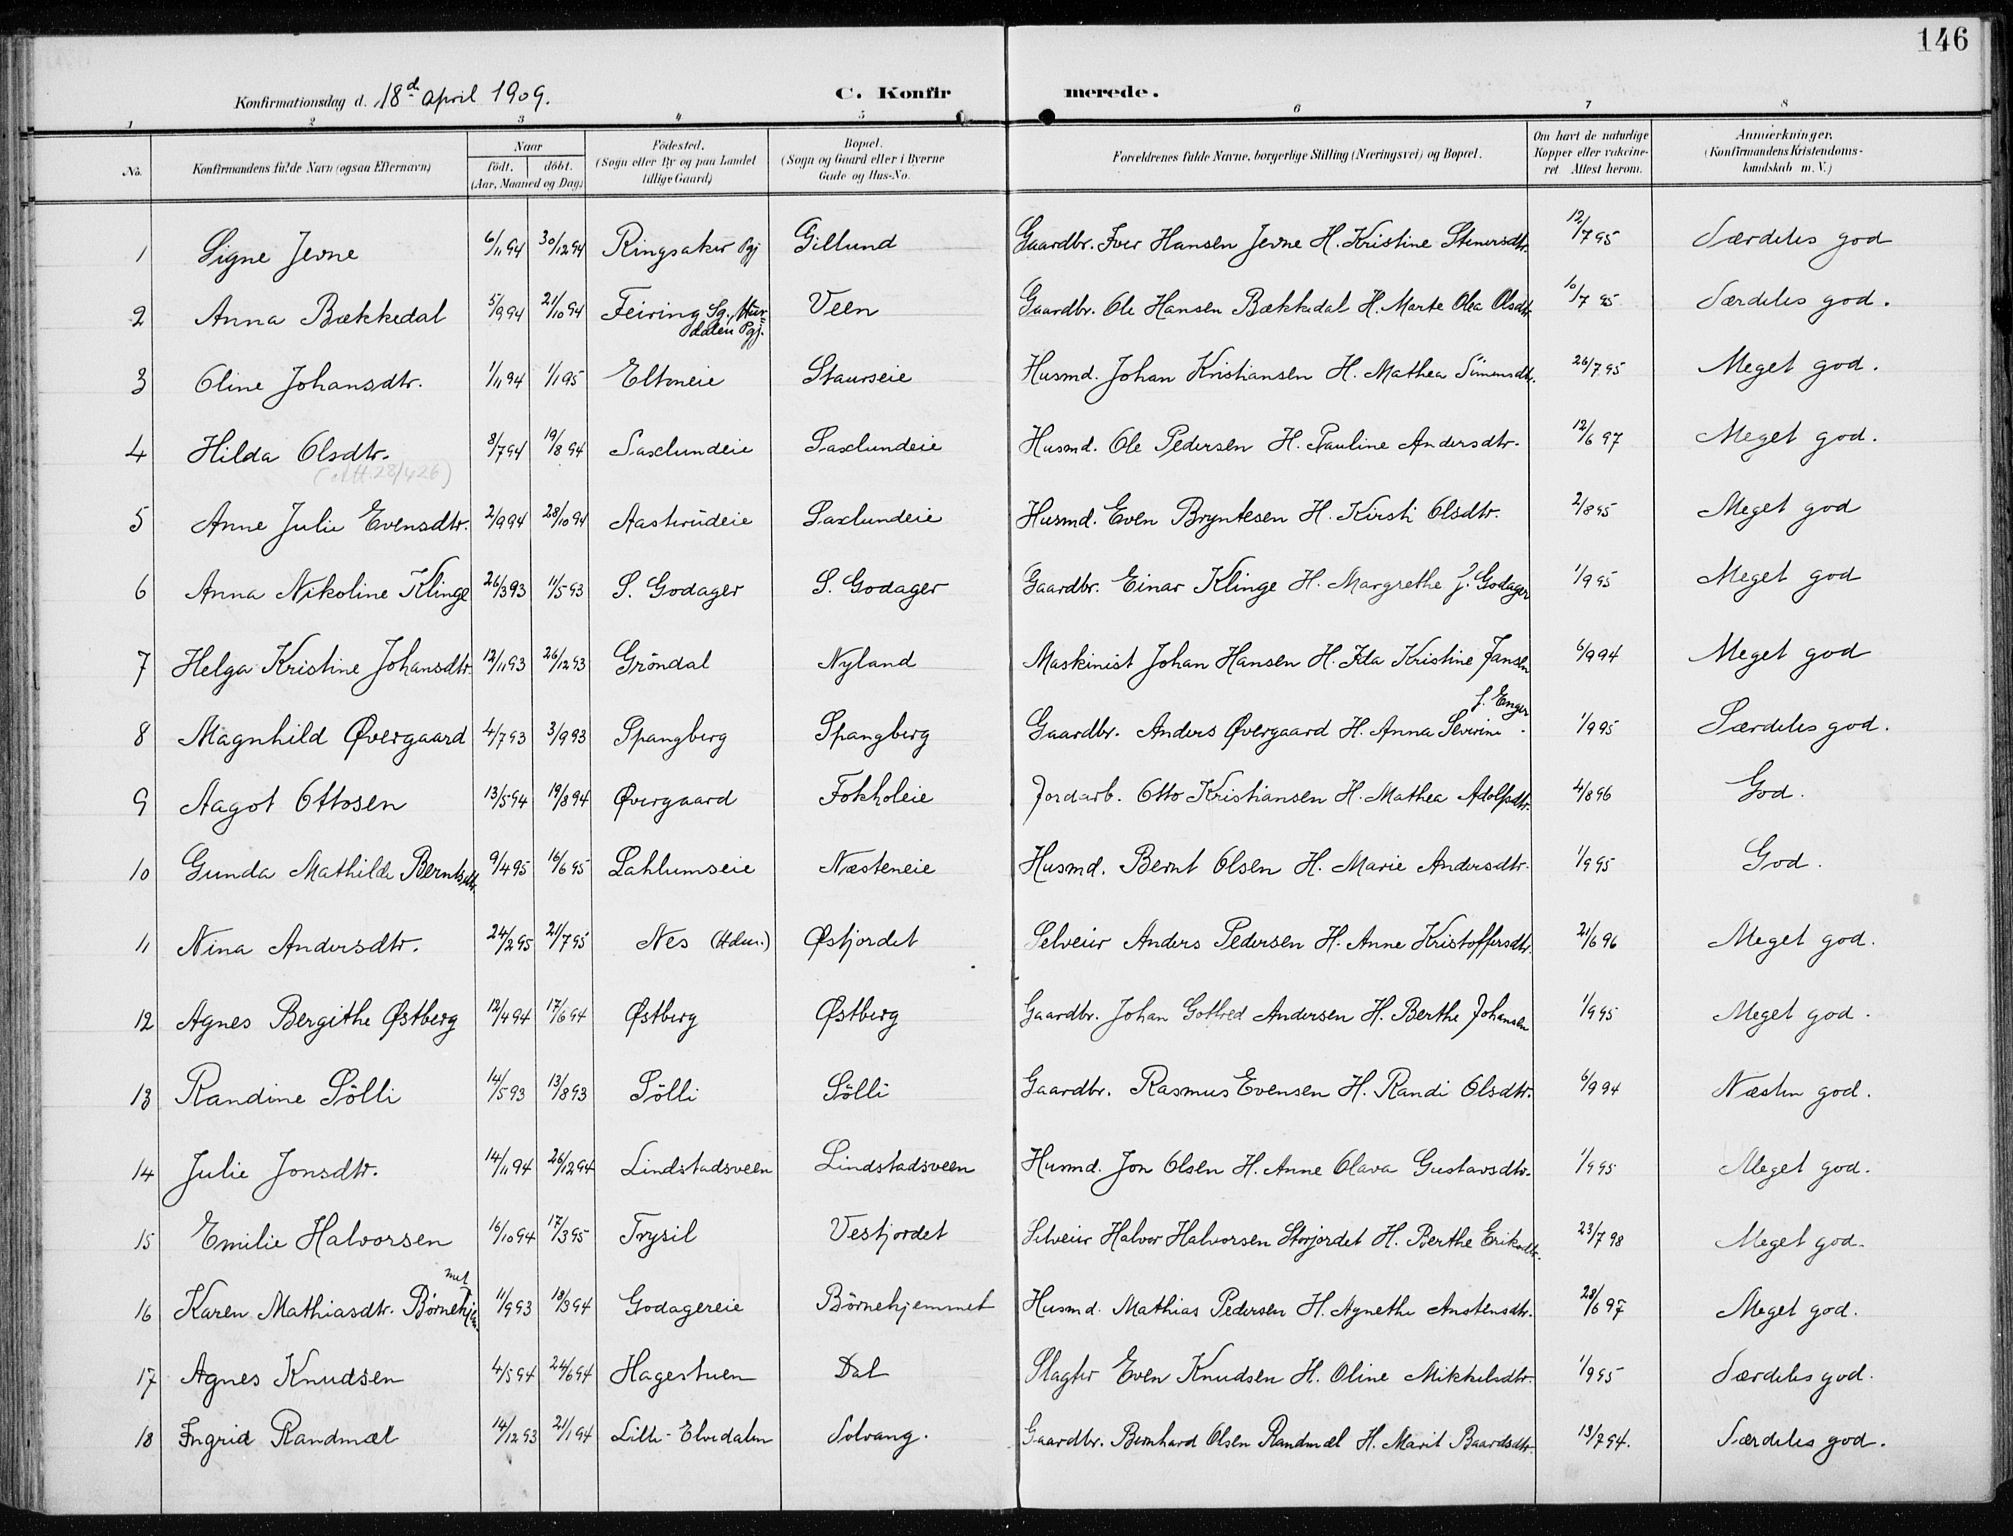 146
Konfirmationsdag d. 18d April 1909.
C. Konfirmerede.
1 2 3 4 5 6 7 8
No. | Konfirmandens fulde Navn (ogsaa Efternavn) | Naar födt. döbt. (Aar, Maaned og Dag) | Födested. (Sogn eller By og paa Landet tillige Gaard) | Bopæl. (Sogn og Gaard eller i Byerne Gade og Hus-No. | Forældrenes fulde Navne, borgerlige Stilling (Næringsvei) og Bopæl. | Om havt de naturlige Kopper eller vakcineret Attest herom. | Anmærkninger. (Konfirmandens Kristendomskundskab m. V.)
1 Signe Jevne 6/11 94 30/12 94 Ringsaker Pgj Gillund Gaardbr. Iver Hansen Jevne H. Kristine Stenersdtr. 12/7 95 Særdeles god
2 Anna Bækkedal 5/9 94 21/10 94 Feiring Sg. Hurdalen Pgj. Veen Gaardbr. Ole Hansen Bækkedal H. Marte Olea Olsdtr. 10/7 95 Særdeles god.
3 Oline Johansdtr. 1/11 94 1/1 95 Eltoneie Staurseie Husmd. Johan Kristiansen H. Mathea Simensdtr. 26/7 95 Meget god.
4 Hilda Olsdtr. 8/7 94 19/8 94 Saxlundeie Saxlundeie Husmd. Ole Pedersen H. Pauline Andersdtr. 12/6 97 Meget god.
(Att. 28/4 26)
5 Anne Julie Evensdtr. 2/9 94 28/10 94 Aasterudeie Saxlundeie Husmd. Even Bryntesen H. Kirsti Olsdtr. 2/8 95 Meget god
6 Anna Nikoline Klinge 26/3 93 11/5 93 S. Godager S. Godager Gaardbr. Einar Klinge H. Margrethe f. Godager 1/9 95 Meget god
7 Helga Kristine Johansdtr. 12/11 93 26/12 93 Gröndal Nyland Maskinist Johan Hansen H. Ida Kristine Jansen 6/9 94 Meget god
8 Magnhild Øvergaard 4/7 93 3/9 93 Spangberg Spangberg Gaardbr. Anders Øvergaard H. Anna Severine f. Enger 1/9 95 Særdeles god.
9 Aagot Ottosen 13/5 94 19/8 94 Øvergaard Fokholeie Jordarb. Otto Kristiansen H. Mathea Adolfsdtr. 4/8 96 God.
10 Gunda Mathilde Berntsdtr. 9/4 95 16/6 95 Lahlumseie Næsteneie Husmd. Bernt Olsen H. Marie Andersdtr. 1/9 95 God.
11 Nina Andersdtr. 24/2 95 21/7 95 Nes (Hdm.) Østjordet Selveier Anders Pedersen H. Anne Kristoffersdtr. 21/6 96 Meget god.
12 Agnes Bergithe Østberg 12/4 94 17/6 94 Østberg Østberg Gaardbr. Johan Gotfred Andersen H. Berthe Johansen 1/9 95 Meget god.
13 Randine Sölli 14/5 93 13/8 93 Sölli Sölli Gaardbr. Rasmus Evensen H. Randi Olsdtr. 6/9 94 Næsten god.
14 Julie Jonsdtr. 14/11 94 26/12 94 Lindstadsveen Lindstadsveen Husmd. Jon Olsen H. Anne Olava Gustavsdtr. 1/9 95 Meget god.
15 Emilie Halvorsen 16/10 94 17/3 95 Trysil Vestjordet Selveier Halvor Halvorsen Storjordet H. Berthe Eriksdtr. 23/7 98 Meget god.
16 Karen Mathiasdtr. Børnehjemmet 11/9 93 18/3 94 Godagereie Börnehjemmet Husmd. Mathias Pedersen H. Agnethe Anstensdtr. 28/6 97 Meget god.
17 Agnes Knudsen 4/5 94 24/6 94 Hagestuen Dal Slagter Even Knudsen H. Oline Mikkelsdtr. 1/9 95 Særdeles god.
18 Ingrid Randmæl 14/12 93 21/1 94 Lille-Elvedalen Solvang. Gaardbr. Bernhard Olsen Randmæl H. Marit Baardsdtr. 13/7 94. Særdeles god.